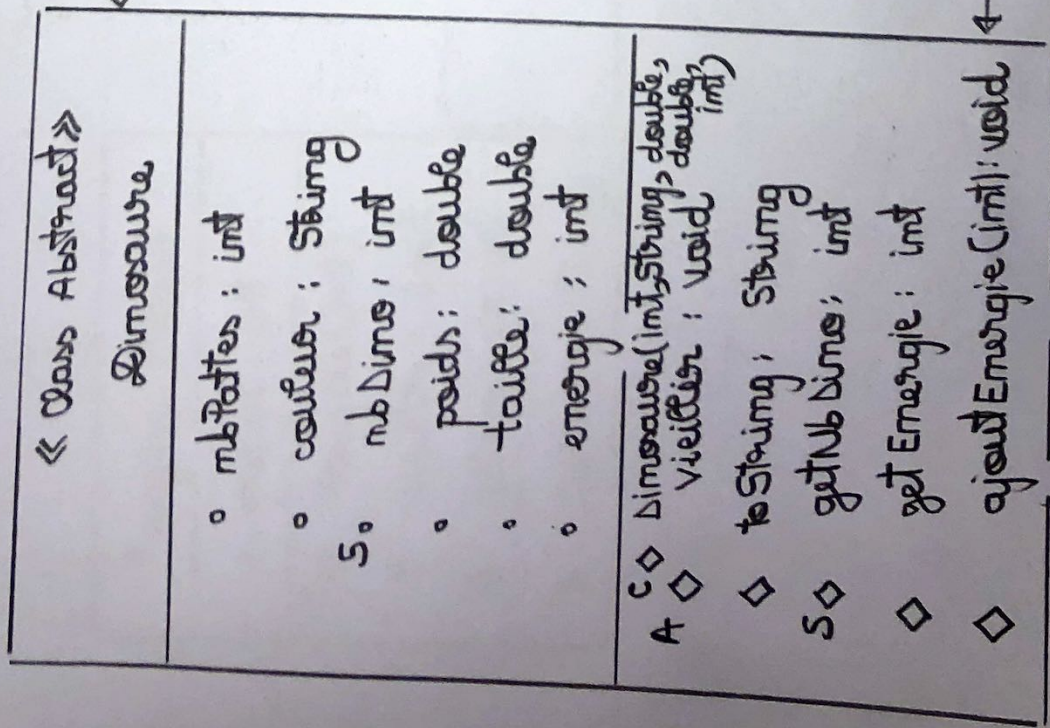 « Class Abstract »
Dinosaure
∘ nbPattes : int
∘ couleur : String
S∘ nbDino : int
∘ poids : double
∘ taille : double
∘ energie : int
C◇ Dinosaure(int,String,double,
double,
int)
A ◇ vieillir : void
◇ toString : String
S◇ getNbDino : int
◇ getEnergie : int
◇ ajoutEnergie(int) : void